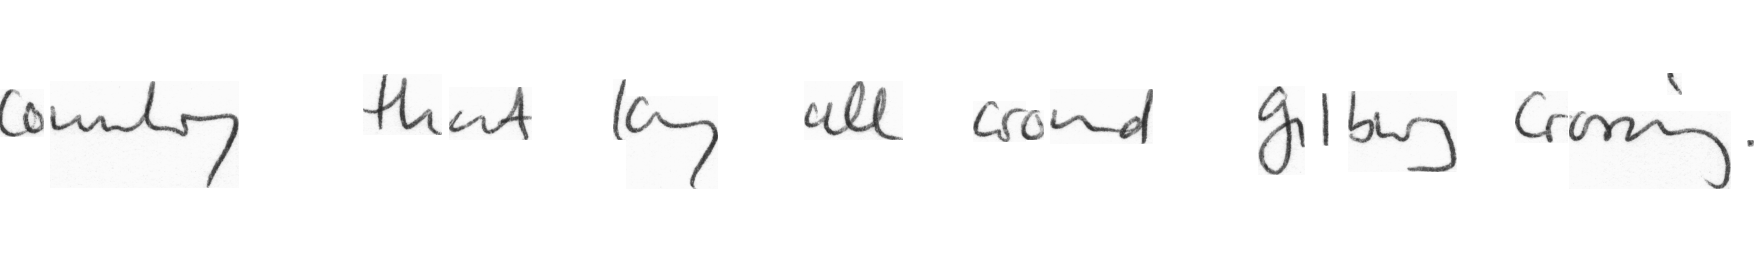 country that lay all around Gilbury Crossing.